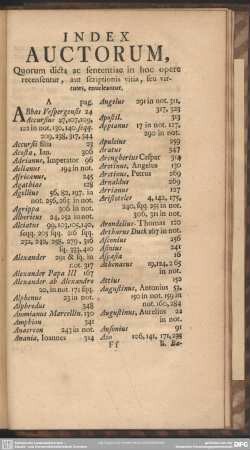 INDEX
AUCTORUM,
Quorum dicta ac sententiae in hoc opere
recensentur, aut scriptionis vitia, seu vir-
tutes, enucleantur.
A pag.
Abbas Vespergensis 24
Accursius 27, 107, 109,
122 in not. 130, 140. seqq.
209, 238, 317, 344
Accursii filii 23
Acosta, Ian. 306
Adrianus, Imperator 96
Aelianus 194 in not.
Africanus, 245
Agathias 128
Agillius 56, 82, 197. in
not. 256, 265 in not.
Agrippa 306 in not.
Albericus 24, 252 in not.
Alciatus 99, 103, 105, 140
seqq. 205 sqq. 216 sqq.
232, 240, 258, 279, 316
sq. 333, 420
Alexander 291 & sq. in
not. 317
Alexander Papa III 167
Alexander ab Alexandro
20, in not. 171 sqq.
Alphenus 23 in not.
Alphredus 348
Ammianus Marcellin. 130
Amphion 341
Anacreon 243 in not.
Anania, Ioannes 314
Angelus 291 in not. 311,
317, 323
Apostil. 313
Appianus 17 in not. 127,
290 in not.
Apuleius 259
Aratus 347
Aringbertus Cespur 314
Aretinus, Angelus 130
Aretinus, Petrus 269
Arnaldus 269
Arrianus 127
Aristoteles 4, 142, 175,
240, 695, 295 in not.
306, 311 in not.
Arundelius Thomas 120
Arthurus Duck 167 in not.
Asconius 256
Asinius 241
Aspasia 16
Athenaeus 29, 124, 265
in not.
Attius 152
Augustinus, Antonius 51,
150 in not. 159 in
not. 160, 284
Augustinus, Aurelius 22
in not.
Ausonius 91
Azo 126, 141, 171, 233
Ff B. Ba-